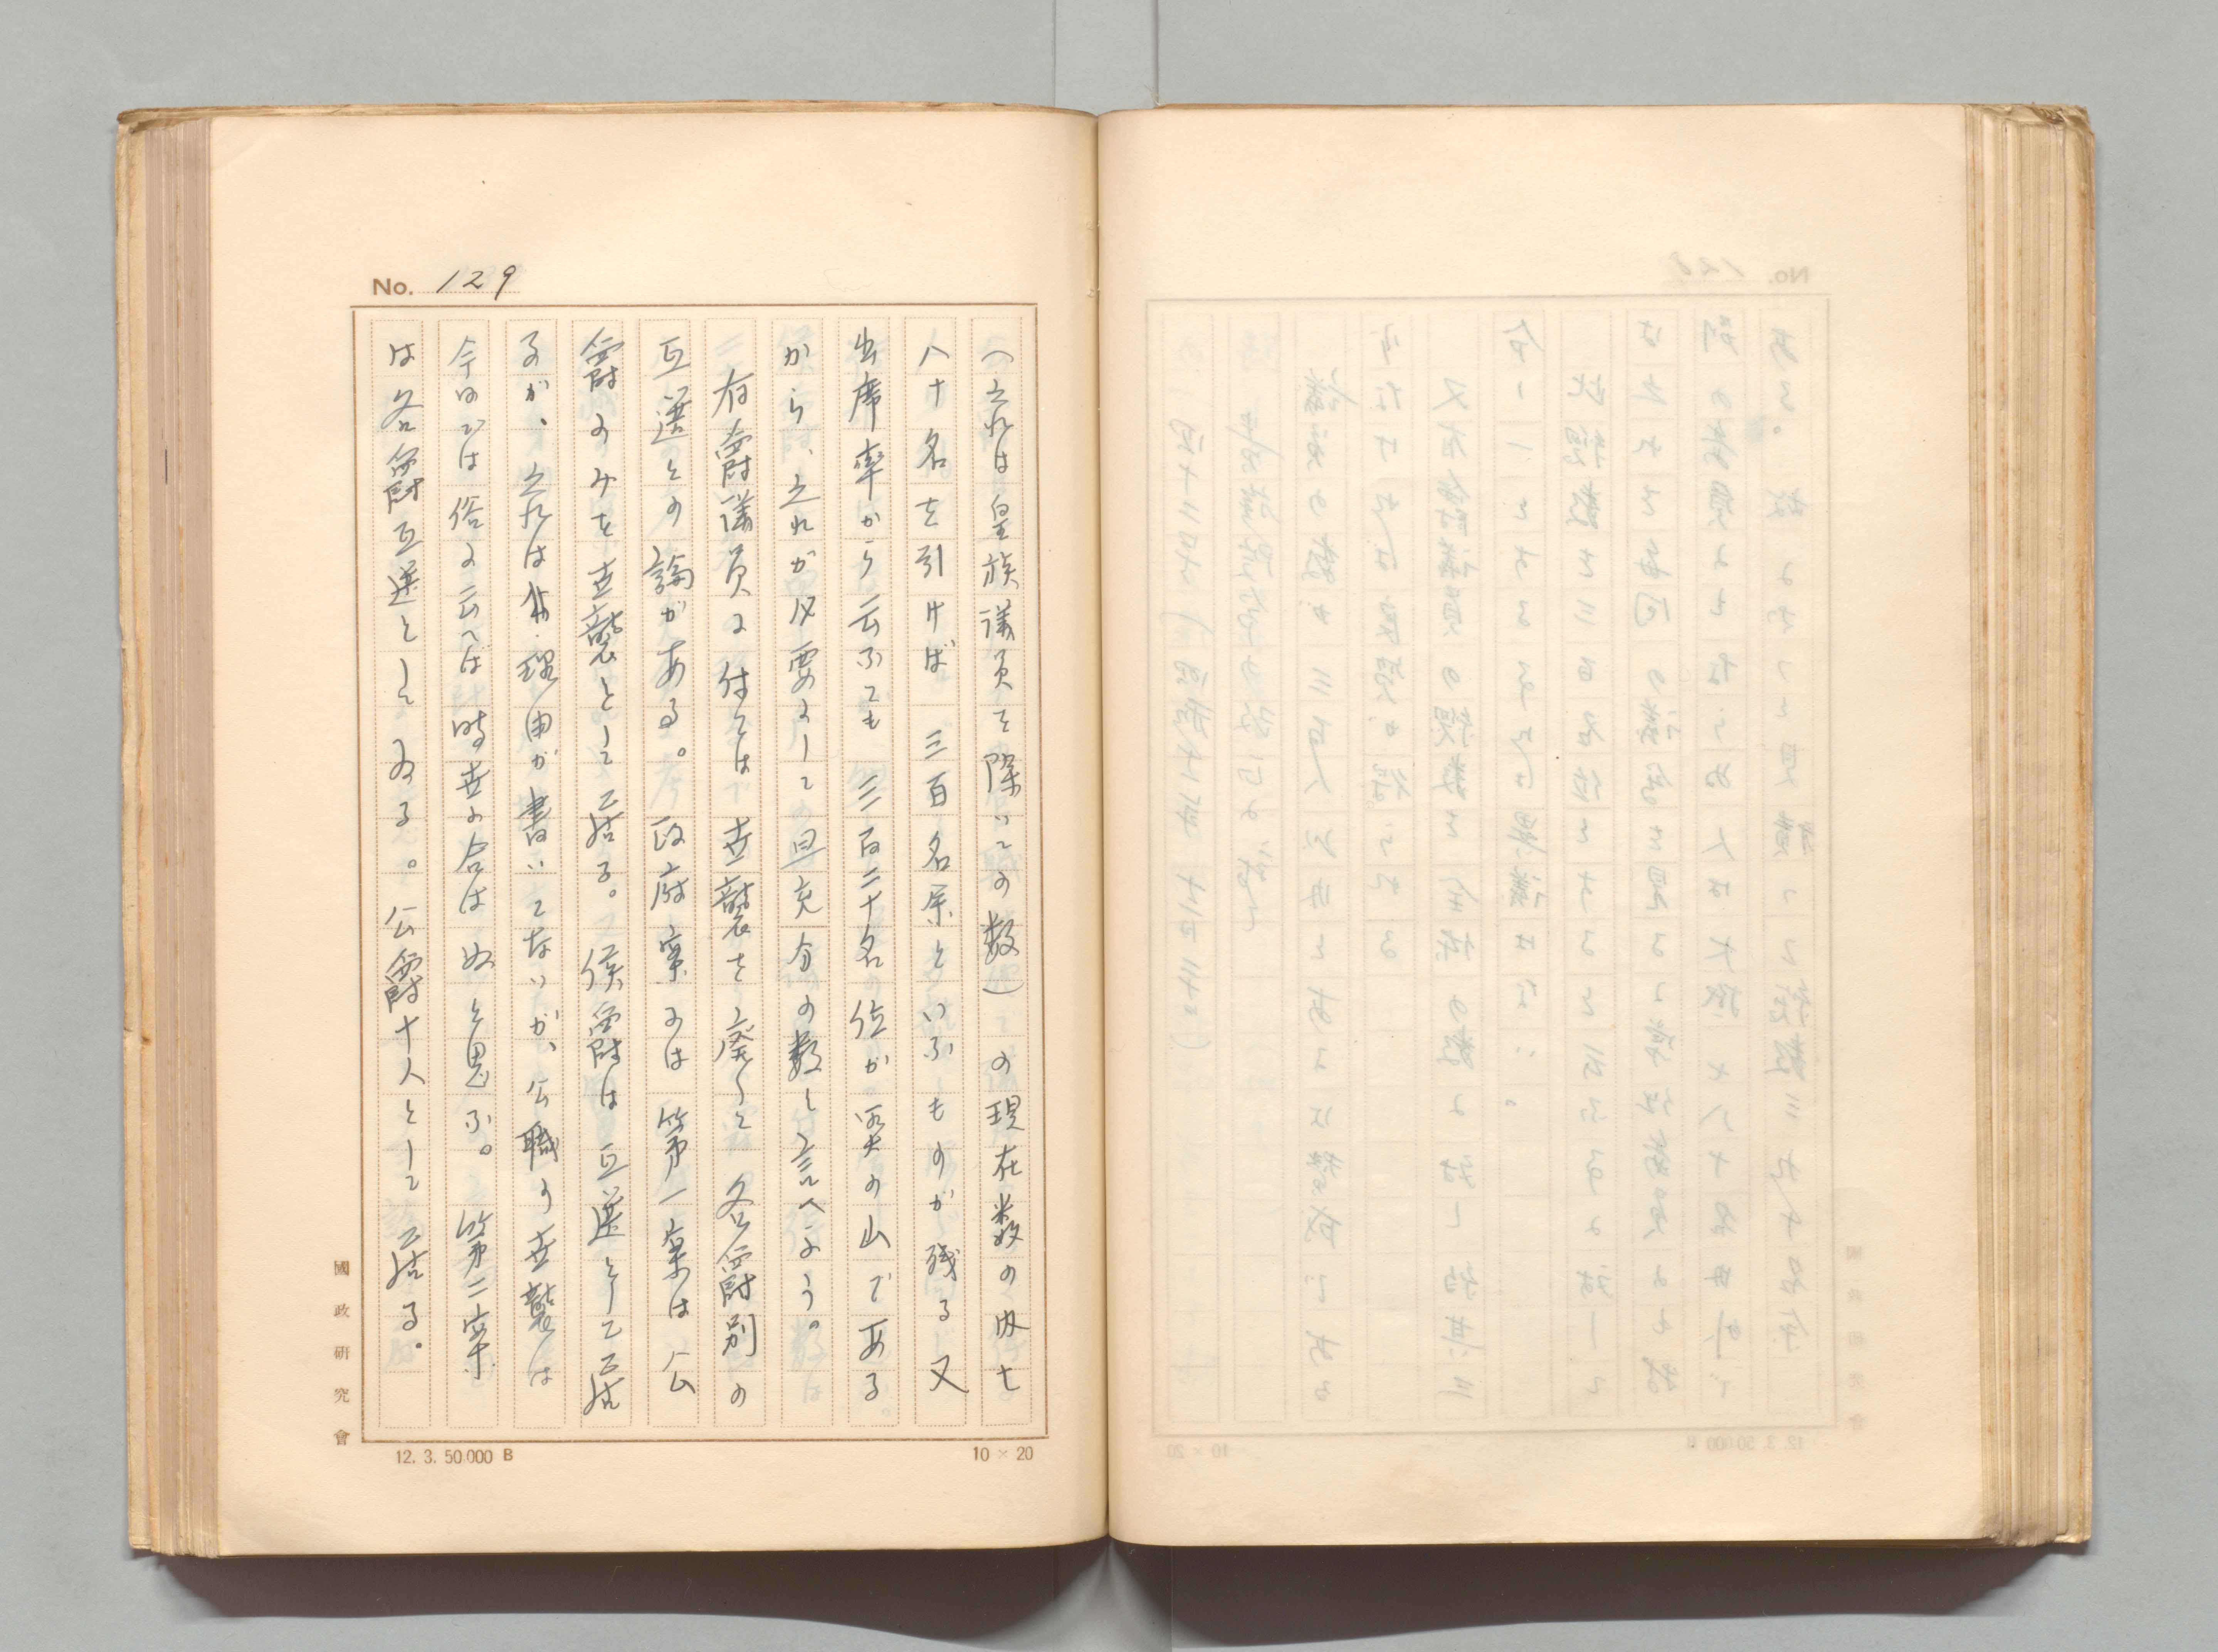 No. 129
(之れは皇族議員を除いての数)の現在数の内七
八十名を引けば 三百名条といふものが残る 又
出席率から云ふても 三百二十名位が関の山である
から、之れが必要にして且充分の数と言へよう。
有爵議員に付ては 世襲を廃して 各爵別の
互選との論がある。政府案には 第一案は 公
爵のみを世襲として居る。侯爵は 互選として居
るが、之れは 理由が書いてないが、公職の世襲は
今日では 俗に云へば 時世に合はぬと思ふ。第二案
は各爵互選としてゐる。公爵十人として居る。
國政研究會
12. 3. 50.000 B
10 × 20